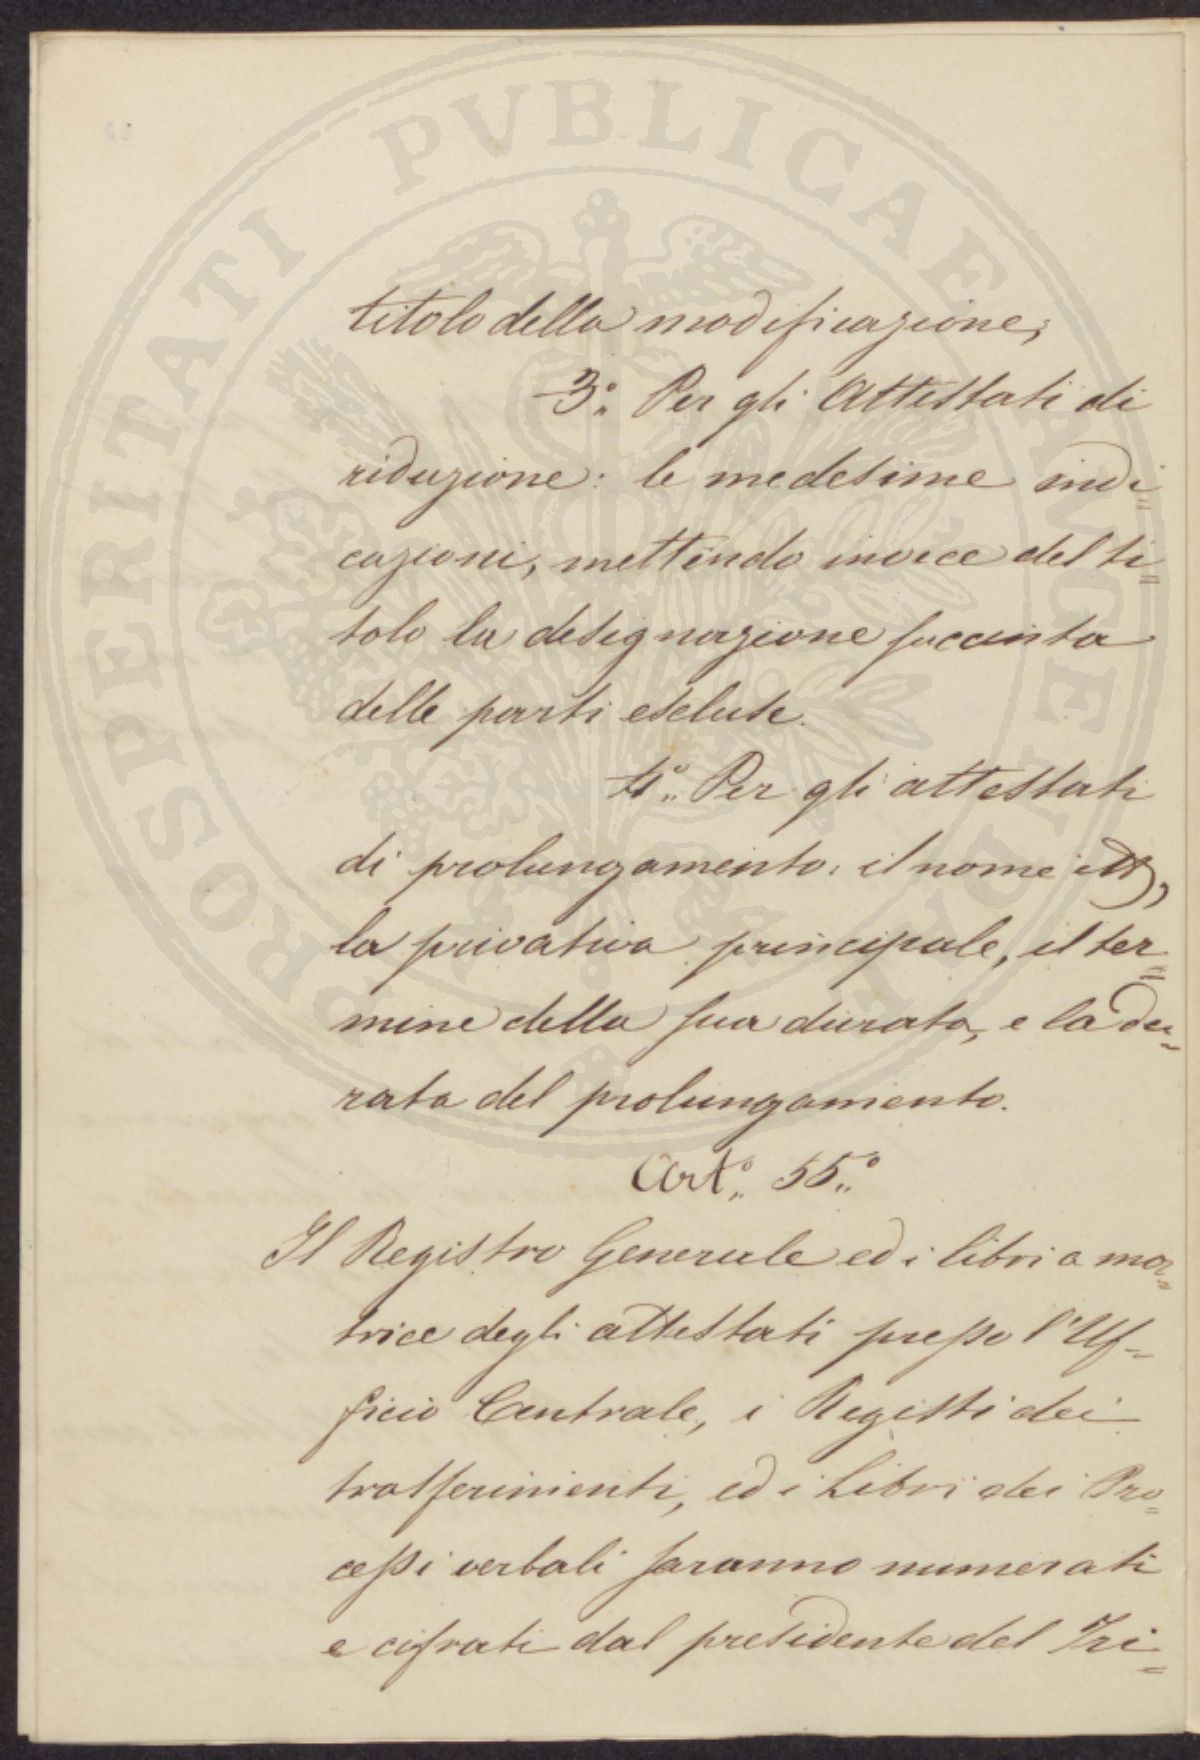 PROSPERITATI PVBLICAE AVGENDAE
titolo della modificazione;
3.° Per gli Attestati di
riduzione: le medesime indi=
cazioni, mettendo invece del ti=
tolo la designazione succinta
delle parti escluse.
4.° Per gli attestati
di prolungamento: il nome
la privativa principale, il ter=
mine della sua durata, e la du=
rata del prolungamento.
Art.° 55.°
Il Registro Generale ed i libri a ma=
trice degli attestati presso l'Uf=
ficio Centrale, i Registi dei
trasferimenti, ed i Libri dei Pro=
cessi verbali saranno numerati
e cifrati dal presidente del Tri=